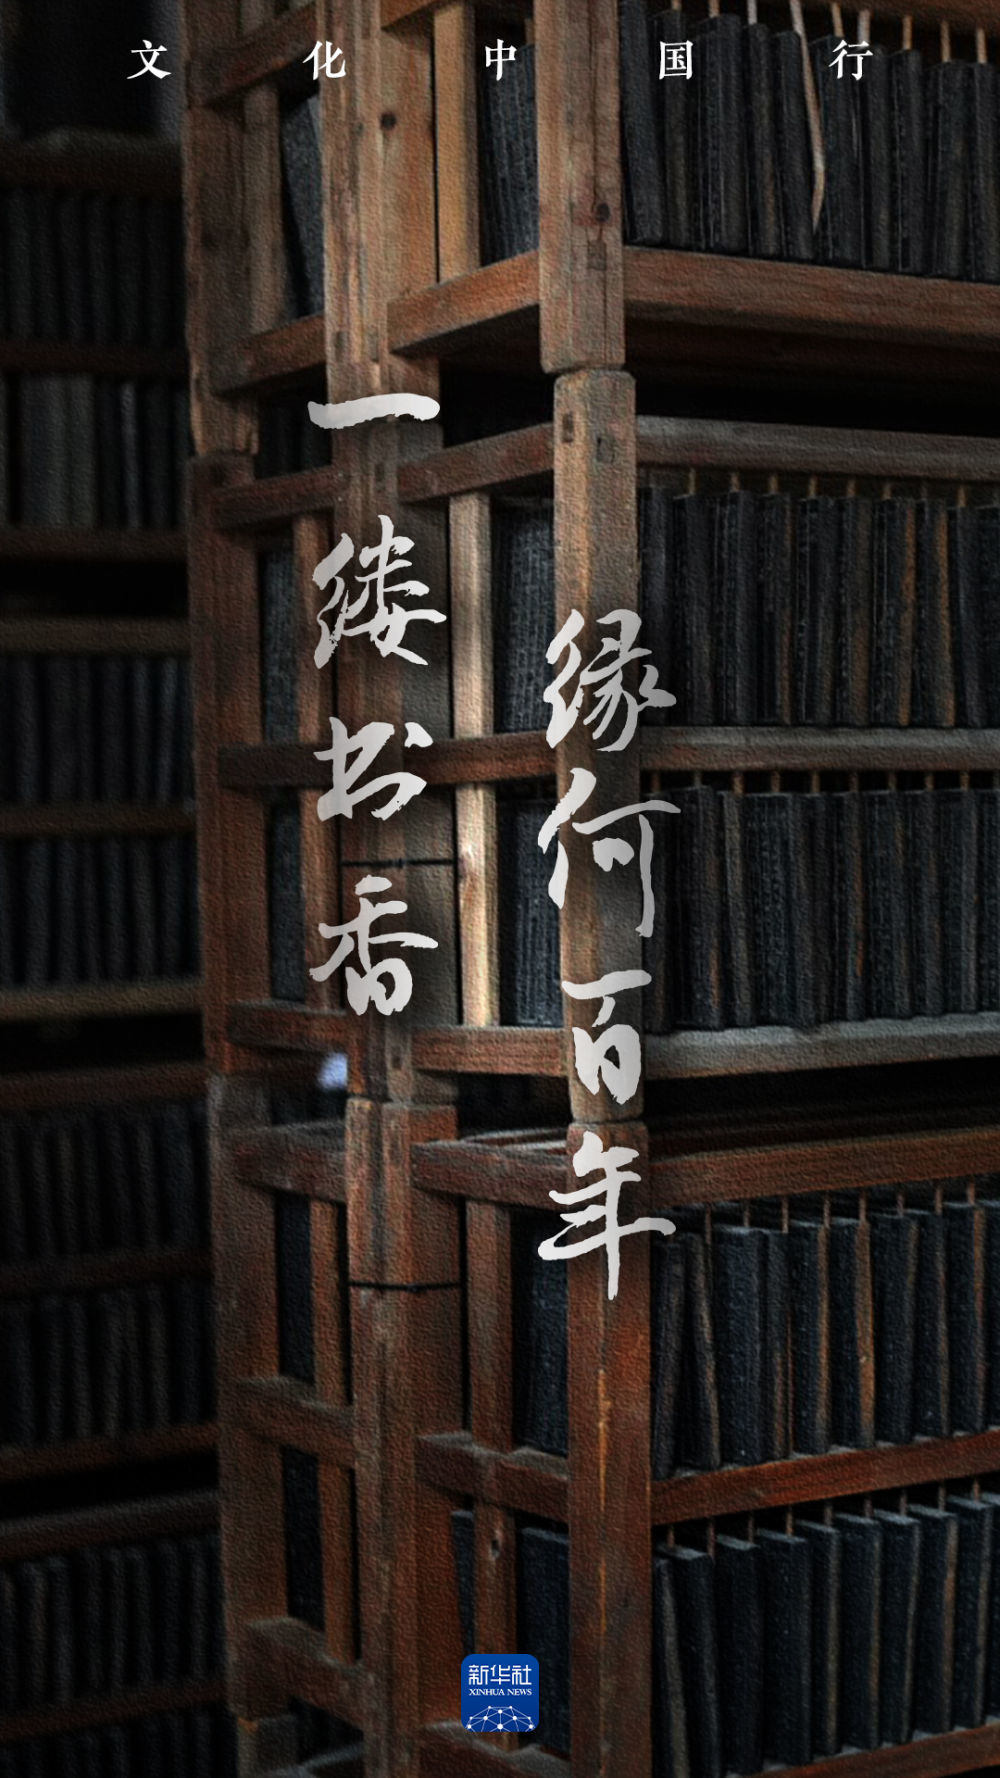 文化中国行
一缕书香
缘何百年
新华社
XINHUA NEWS